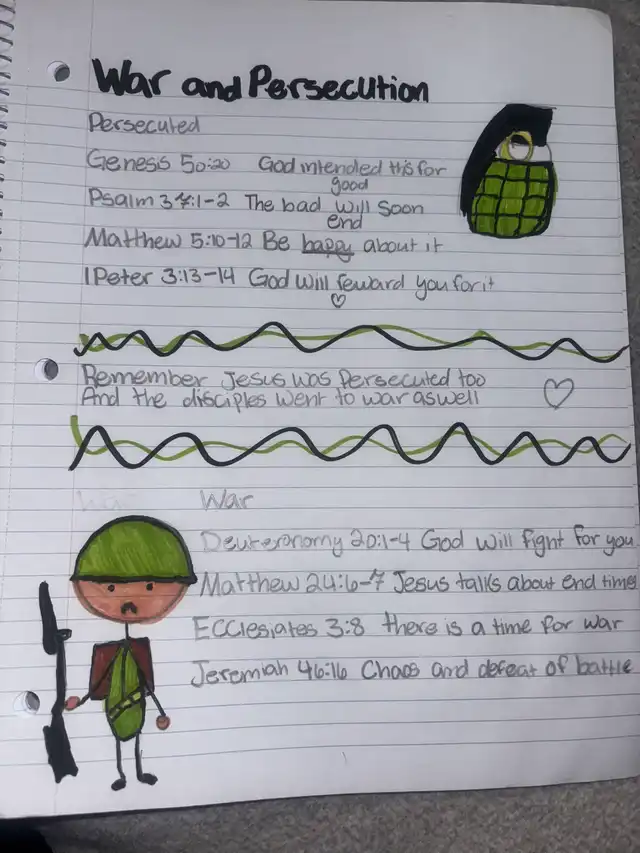 War and Persecution
Persecuted
Genesis 50:20 God intended this for
good
Psalm 37:1-2 The bad will soon
end
Matthew 5:10-12 Be happy about it
1 Peter 3:13-14 God will reward you for it
Remember Jesus was Persecuted too
And the disciples went to war aswell
War War
Deuteronomy 20:1-4 God will fight for you
Matthew 24:6-7 Jesus talks about end times
Ecclesiates 3:8 there is a time for war
Jeremiah 46:16 Chaos and defeat of battle